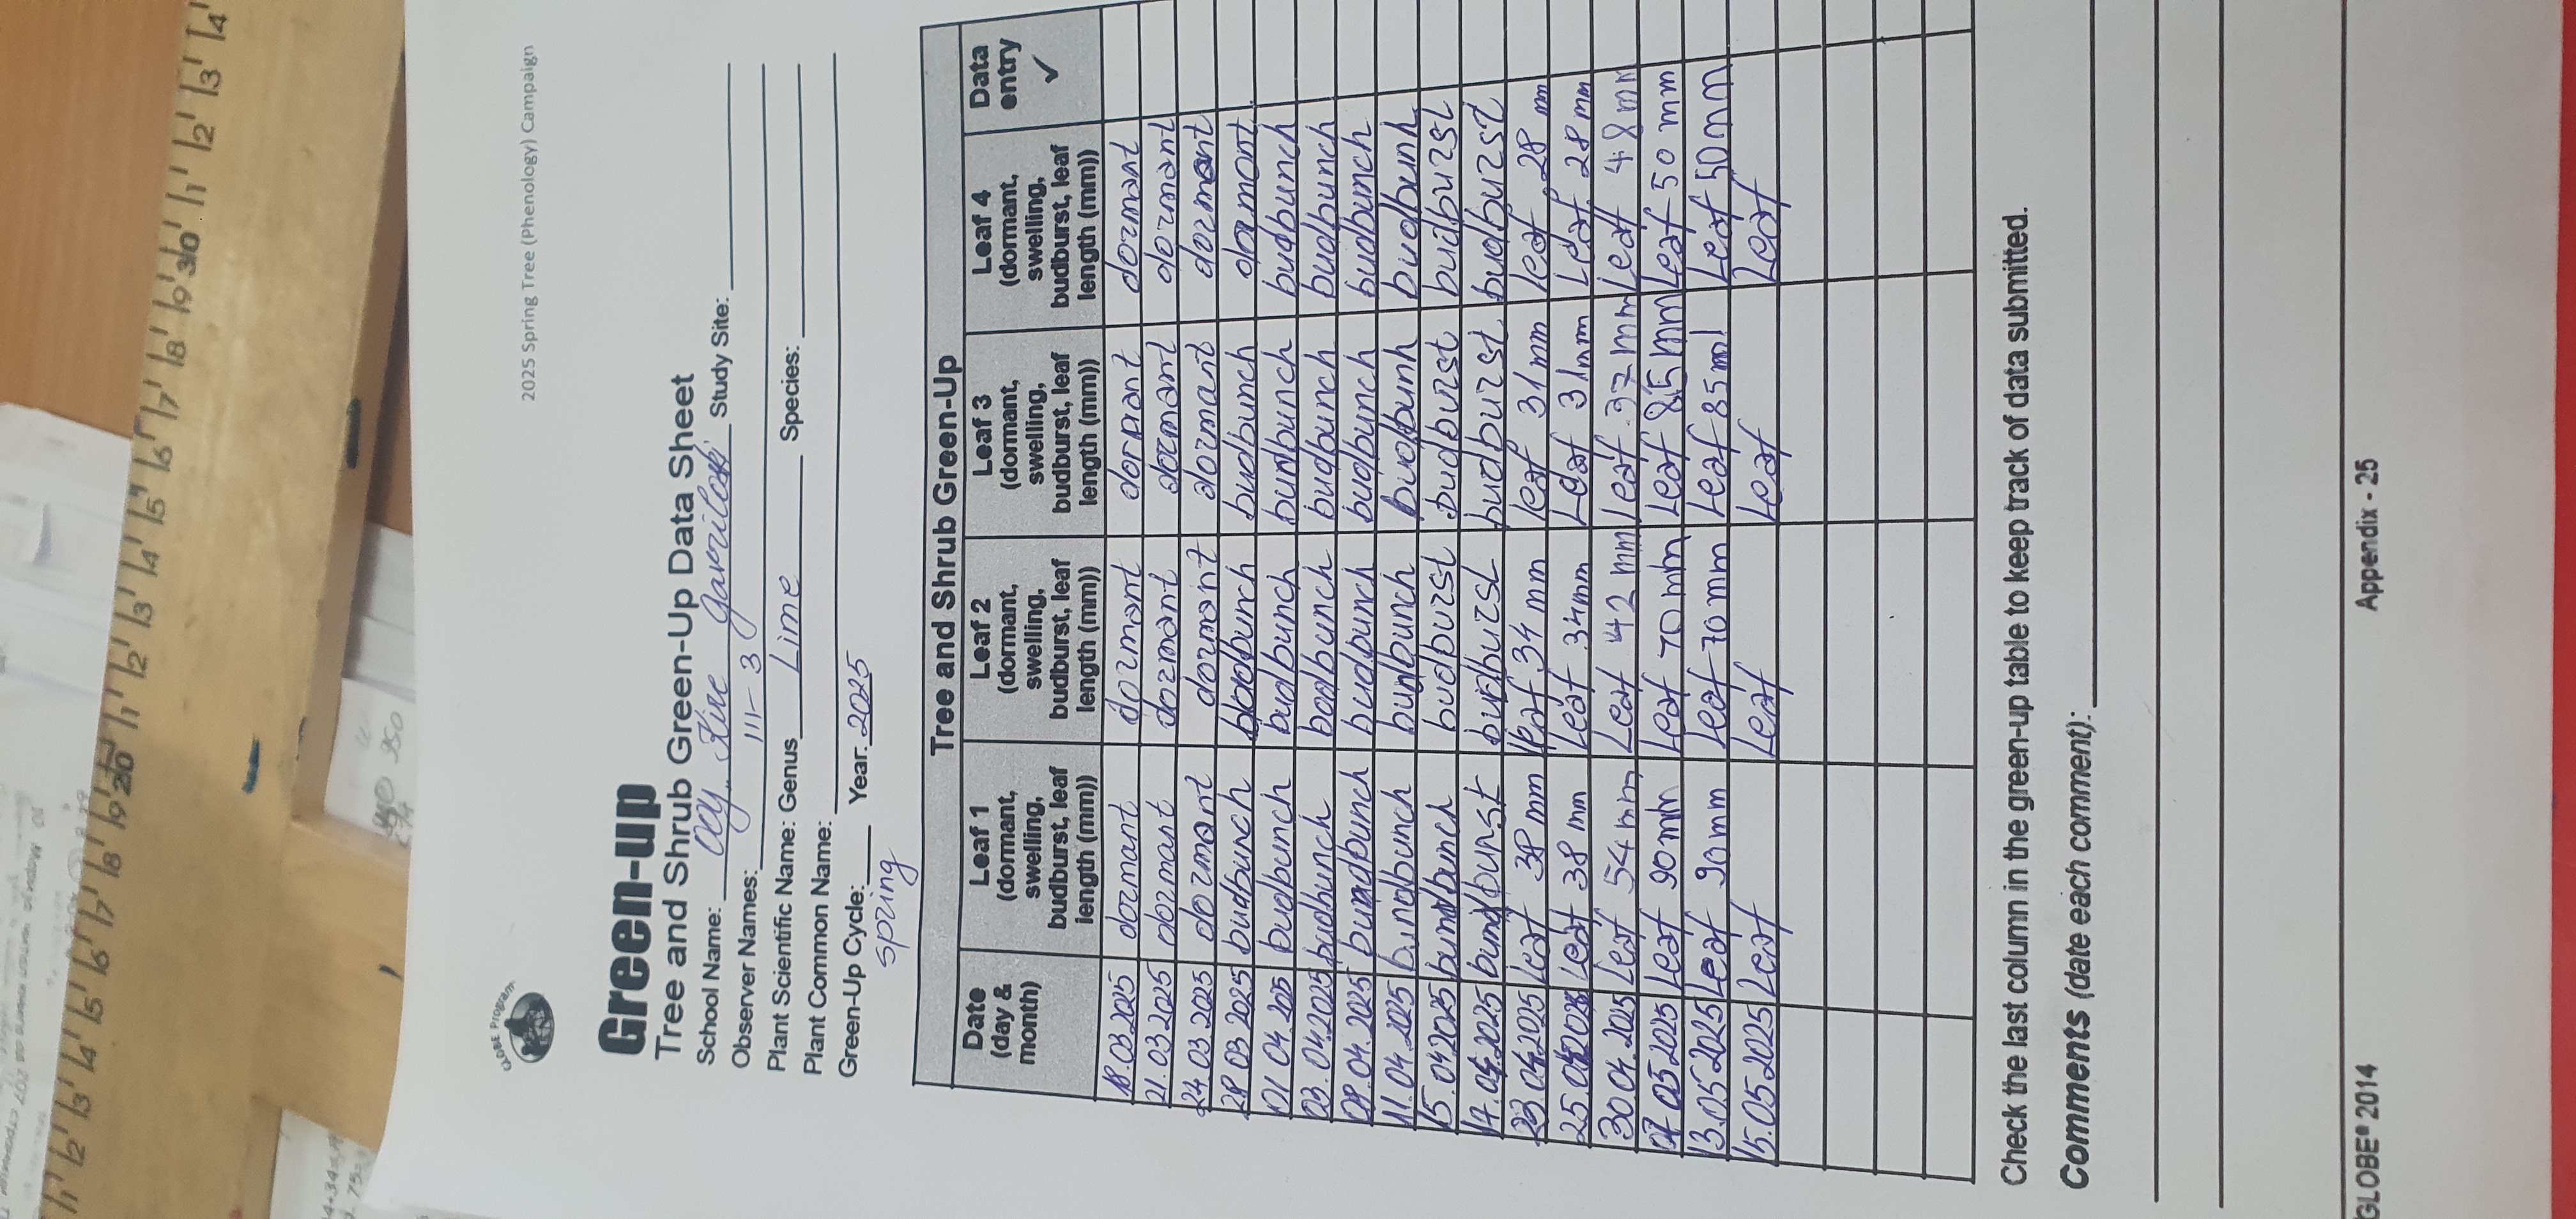 2025 Spring Tree (Phenology) Campaign
GLOBE Program
Green-up
Tree and Shrub Green-Up Data Sheet
School Name: Kire Gavriloski Study Site:
Observer Names: III-3
Plant Scientific Name: Genus Lime Species:
Plant Common Name:
Green-Up Cycle: Year 2025
spring
Tree and Shrub Green-Up
Date (day & month) Leaf 1 (dormant, swelling, budburst, leaf length (mm)) Leaf 2 (dormant, swelling, budburst, leaf length (mm)) Leaf 3 (dormant, swelling, budburst, leaf length (mm)) Leaf 4 (dormant, swelling, budburst, leaf length (mm)) Data entry ✓
18.03.2025 dormant dormant dormant dormant
21.03.2025 dormant dormant dormant dormant
24.03.2025 dormant dormant dormant dormant
28.03.2025 budbunch budbunch dormant
01.04.205 budbunch budbunch bunbunch budbunch
03.04.2025 budbunch bodbunch budbunch budbunch
08.04.2025 bundbunch budbunch budbunch budbunch
11.04.2025 bundbunch bunbunch budbunh budbunh
15.04.2025 bundbunch budburst budburst budburst
17.04.2025 bundbunst budburst budburst budburst
23.04.2025 leaf 38 mm leaf 34 mm leaf 31 mm leaf 28 mm
25.04.2025 leaf 38 mm leaf 34mm Leaf 31mm Leaf 28 mm
30.04.2025 Leaf 54mm Leaf 42 mm leaf 37mm Leaf 48mm
07.05.2025 Leaf 90mm Leaf 70 mm Leaf 85mm Leaf 50 mm
13.05.2025 Leaf 90mm Leaf 70mm Leaf 85ml Leaf 50mm
15.05.2025 Leaf Leaf Leaf Leaf
Check the last column in the green-up table to keep track of data submitted.
Comments (date each comment):
GLOBE® 2014 Appendix - 25